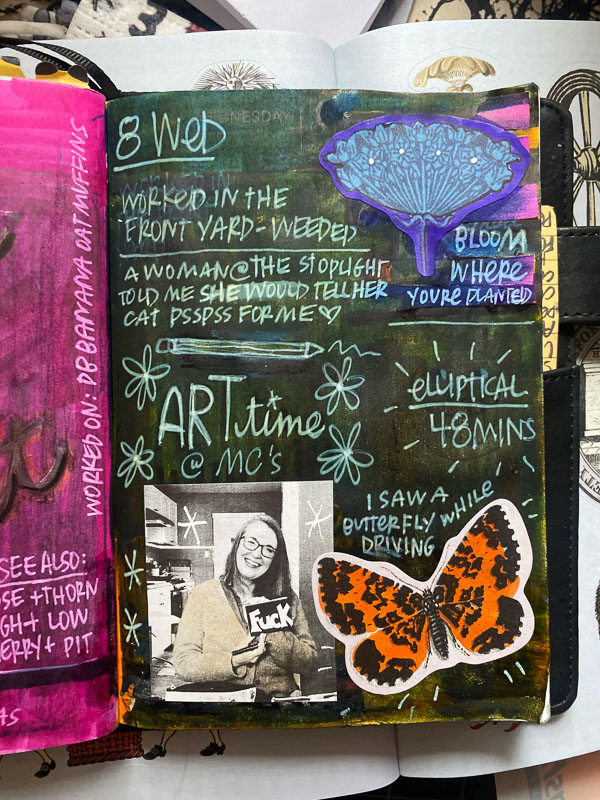 WORKED ON: PB BANANA OAT MUFFINS
SEE ALSO:
+ THORN
+ LOW
+ PIT
8 WED
WORKED IN THE
FRONT YARD - WEEDED
A WOMAN @ THE STOPLIGHT
TOLD ME SHE WOULD TELL HER
CAT PSSPSS FOR ME ♡
BLOOM
WHERE
YOU'RE PLANTED
ART time
@ MC's
ELLIPTICAL
48 MINS
I SAW A
BUTTERFLY WHILE
DRIVING
FUCK